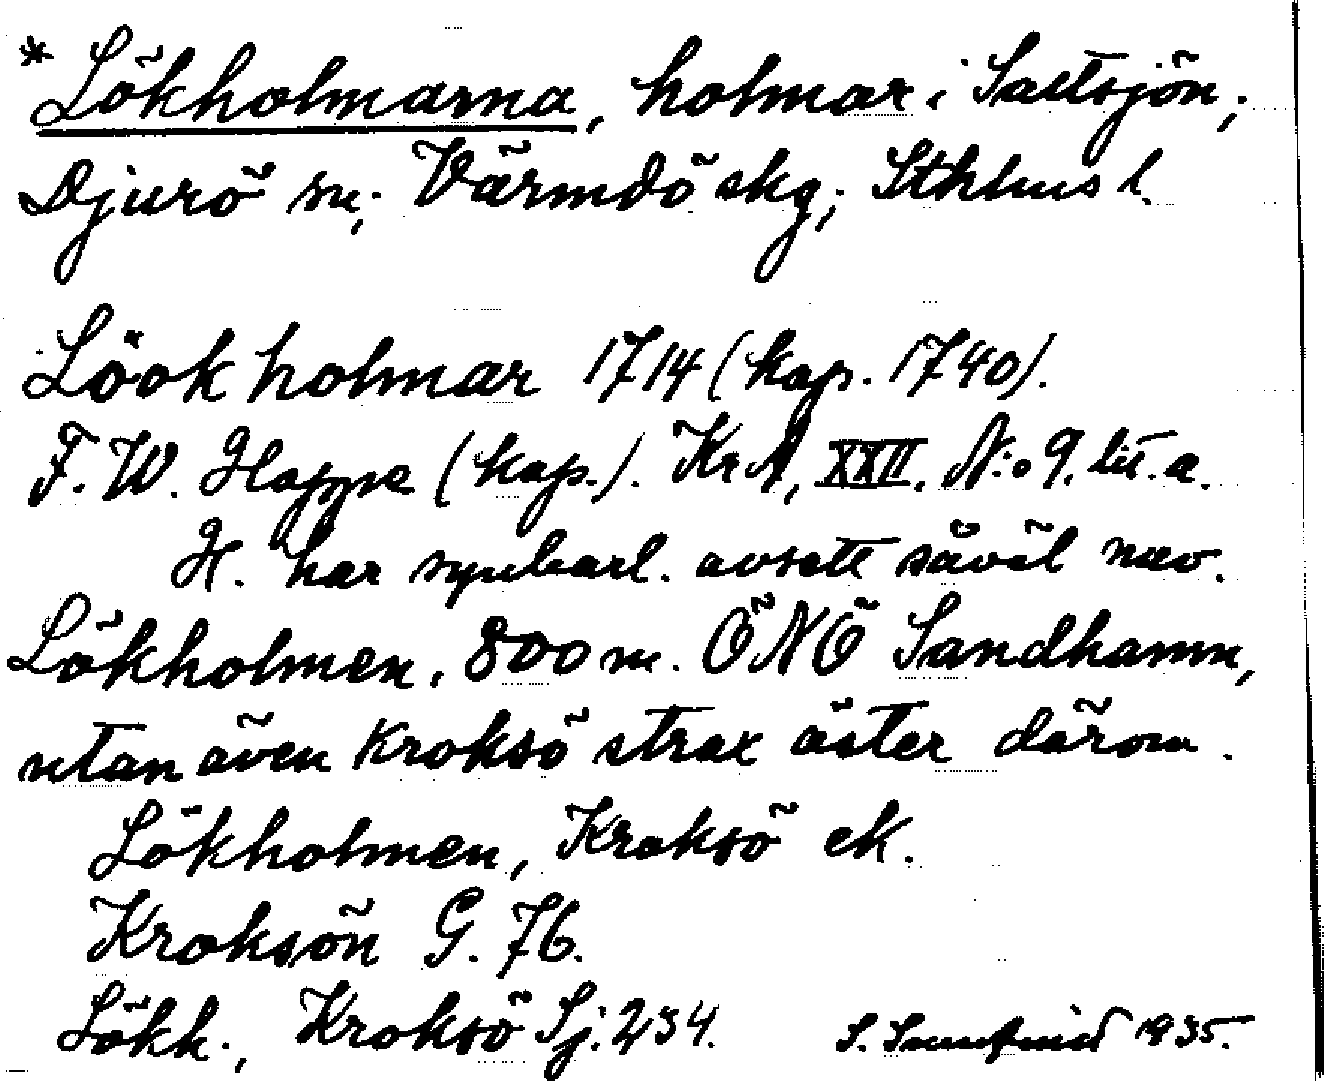 * Lökholmarna, holmar i Saltsjön,
Djurö sn, Värmdö skg, Sthlms l.
Löök holmar 1714 (kap. 1740).
F. W. Happe (kap.). KrA, XXII. N:o 9. lit. a.
H. har synbarl. avsett såväl nuv.
Lökholmen, 800 m. ÖNÖ Sandhamn,
utan även Kroksö strax öster därom.
Lökholmen, Kroksö ek.
Kroksön G. 76.
Lökh., Kroksö Sj. 234. S. 1935.